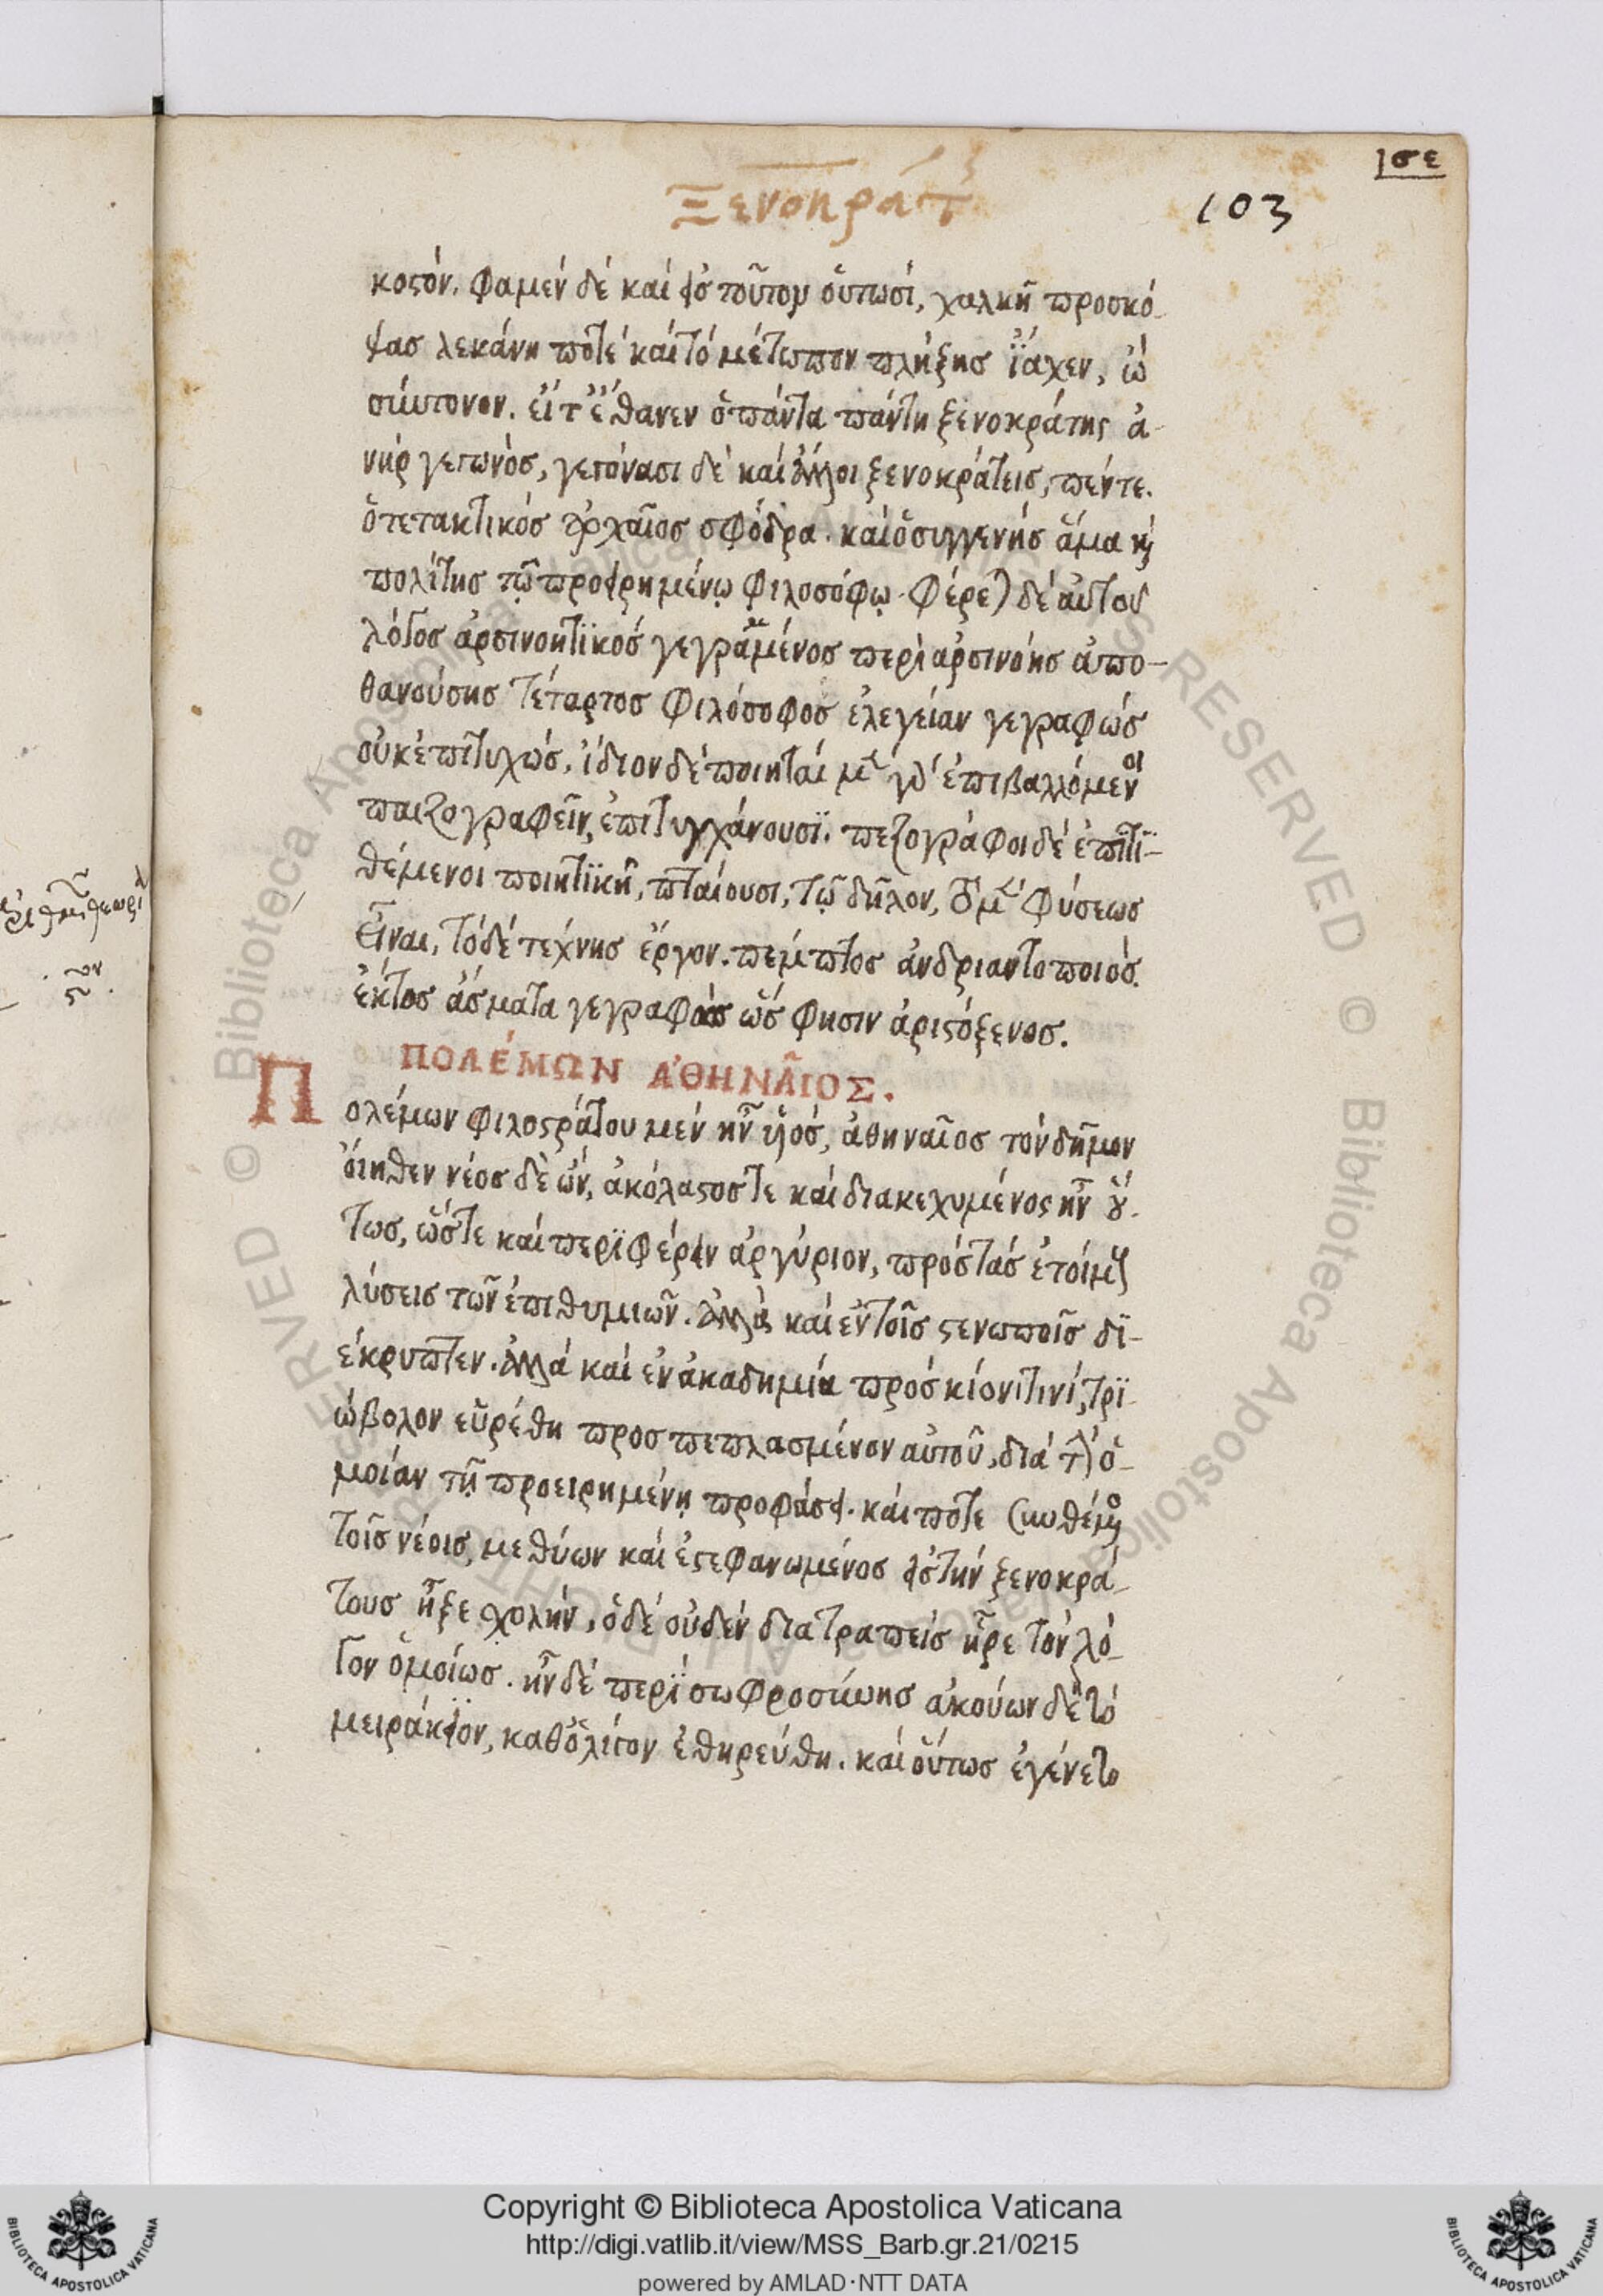 σε
103
Ξενοκράτ
κοστόν. φαμέν δέ καί εἰσ τοῦτον οὑτωσί, χαλκῆ προσκό-
ψασ λεκάνη ποτέ καί τό μέτωπον πλήξησ ἴαχεν, ὠ
σύντονον. εἶτ ἔθανεν ὁ πάντα πάντη ξενοκράτης ἀ-
νήρ γεγωνὸσ, γεγόνασι δέ καί ἄλλοι ξενοκράτεισ, πέντε.
ὅ τε τακτικόσ ἀρχαῖοσ σφόδρα. καί ὁ συγγενήσ ἅμα καὶ
πολίτησ τῶ προειρημένῳ φιλοσόφῳ. φέρεται δέ αὐτοῦ
λόγοσ ἀρσινοητϊκόσ γεγραμμένοσ περὶ ἀρσινόησ ἀπο-
θανούσησ τέταρτοσ φιλόσοφοσ ἐλεγείαν γεγραφώσ
οὐκ ἐπιτυχῶσ, ἴδιον δέ ποιηταί μὲν γὰρ ἐπιβαλλόμενοι
παιζογραφεῖν, ἐπιτυγχάνουσϊ. πεζογράφοι δέ ἐπιτϊ-
θέμενοι ποιητϊκῆ, πταίουσι, τῶ δῆλον, τὸ μὲν φύσεωσ
εἶναι, τό δέ τέχνησ ἔργον. πέμπτοσ ἀνδριαντοποιόσ.
ἕκτοσ ἄσματα γεγραφώσ ὥσ φησιν ἀριστόξενοσ.
ΠΟΛΈΜΩΝ ἈΘΗΝΑ͂ΙΟΣ.
Πολέμων φιλοστράτου μέν ἦν ὑιόσ, ἀθηναῖοσ τόν δῆμον
ὄιηθεν νέοσ δὲ ὤν, ἀκόλαστοσ τε καί διακεχυμένος ἦν οὕ-
τωσ, ὥστε καί περϊφέρειν ἀργύριον, πρόσ τάσ ἑτοίμους
λύσεισ τῶν ἐπιθυμιῶν. ἀλλὰ καί ἐν τοῖσ στενωποῖσ δϊ-
έκρυπτεν. ἀλλά καί ἐν ἀκαδημία πρόσ κίονι τινί, τρϊ-
ώβολον εὑρέθη προσπεπλασμένον αὐτοῦ, διά τὴν ὁ-
μοίαν τῆ προειρημένῃ προφάσει. καί ποτε συνθέμενος
τοῖσ νέοισ, μεθύων καί ἐστεφανωμένοσ εἰσ τήν ξενοκρά-
τουσ ἦξε σχολήν, ὁ δέ οὐδέν διατραπείσ ἦρε τόν λό-
γον ὁμοίωσ. ἦν δέ περϊ σωφροσύνησ ἀκούων δὲ τό
μειράκϊον, καθ ὀλίγον ἐθηρεύθη. καί οὕτωσ ἐγένετο
Copyright © Biblioteca Apostolica Vaticana
http://digi.vatlib.it/view/MSS_Barb.gr.21/0215
powered by AMLAD·NTT DATA
BIBLIOTECA APOSTOLICA VATICANA
BIBLIOTECA APOSTOLICA VATICANA